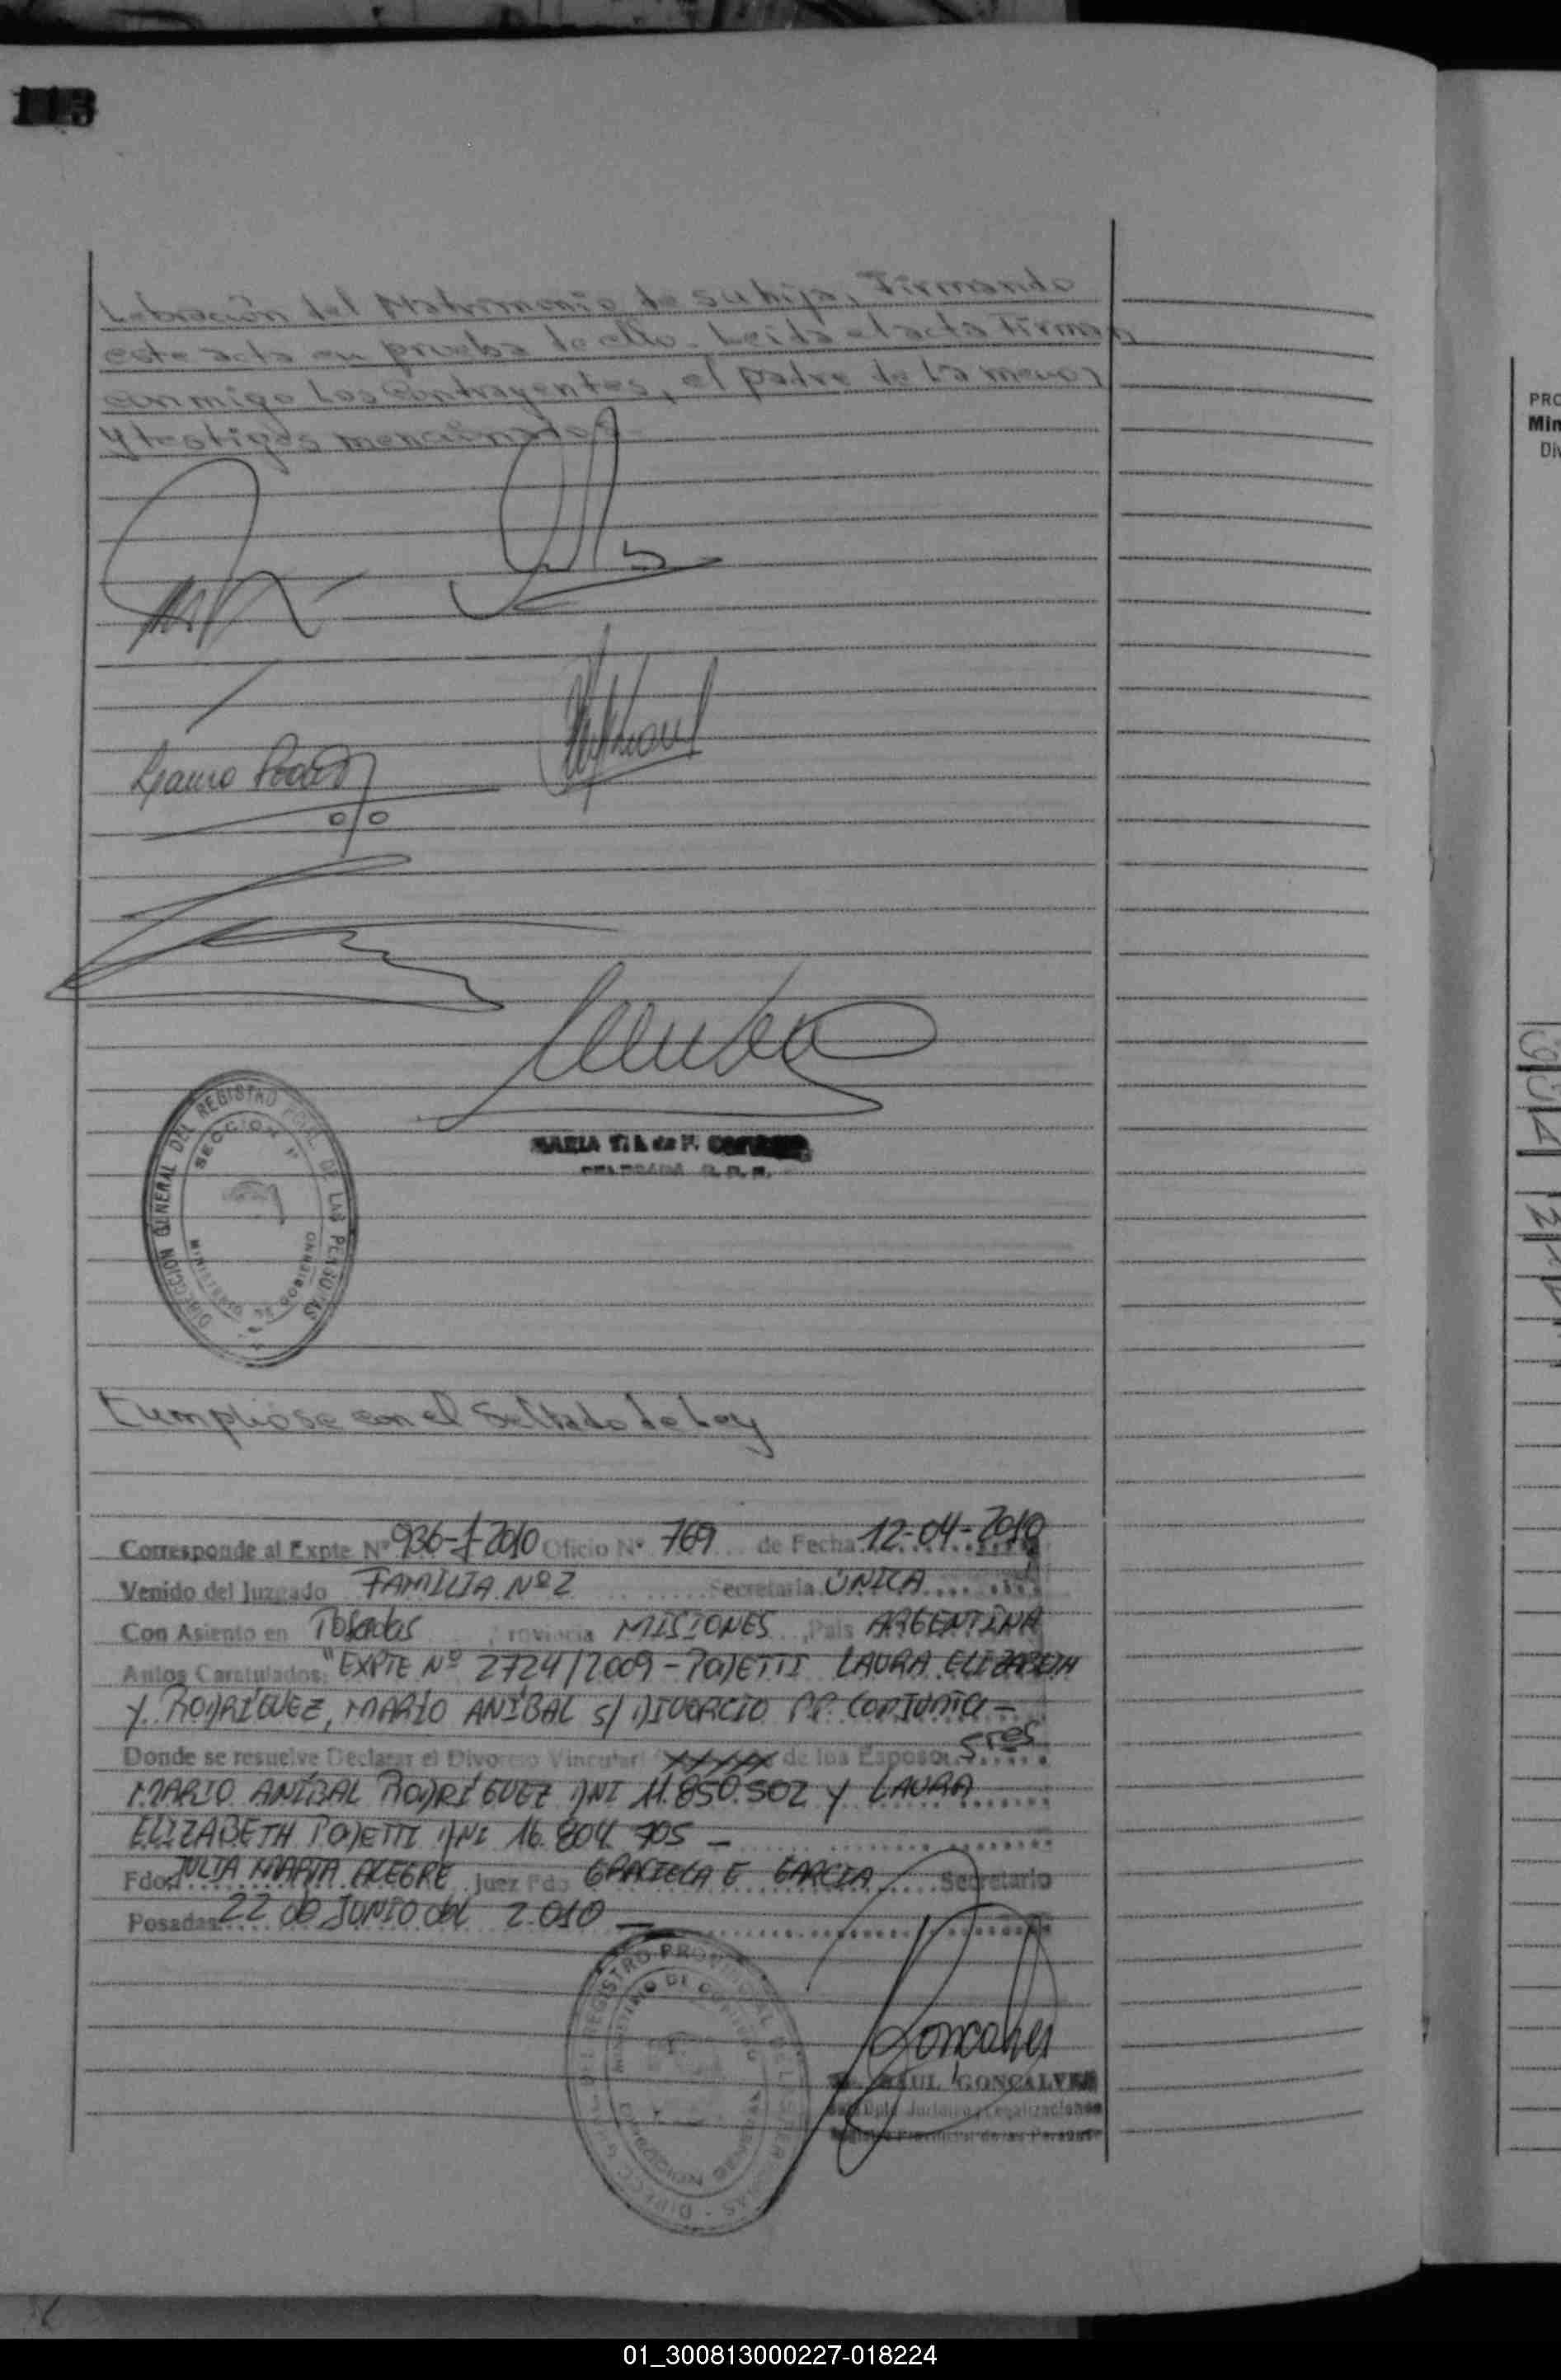 113
lebración del Matrimonio de su hija, Firmando
este acta en prueba de ello. Leida el acta Firman
conmigo Los Contrayentes, el padre de la menor
y testigos mencionados
DIRECCION GENERAL DEL REGISTRO PCIAL. DE LAS PERSONAS
SECCION 1ª
MINISTERIO DE GOBIERNO
Cumpliose con el Sellado de Ley
Corresponde al Expte Nº 936-J-2010 Oficio Nº 769 de Fecha 12-04-2010
Venido del Juzgado FAMILIA Nº 2 Secretaria ÚNICA
Con Asiento en Posadas Provincia MISIONES, País ARGENTINA
Autos Caratulados: "EXPTE Nº 2724/2009 - POJETTI LAURA ELIZABETH
Y RODRÍGUEZ, MARIO ANÍBAL S/ DIVORCIO PP. CONJUNTA -
Donde se resuelve Declarar el Divorcio Vincular de los Esposos Sres
MARIO ANÍBAL RODRÍGUEZ DNI 11.850.502 Y LAURA
ELIZABETH POJETTI DNI 16.804.705 -
Fdo: JULIA MARTA ALEGRE Juez Fdo GRACIELA E GARCIA Secretario
Posadas 22 de JUNIO del 2.010 -
RAUL GONCALVES
Dpto. Juridico y Legalizaciones
Registro Provincial de las Personas
PRO
Min
Div
01_300813000227-018224